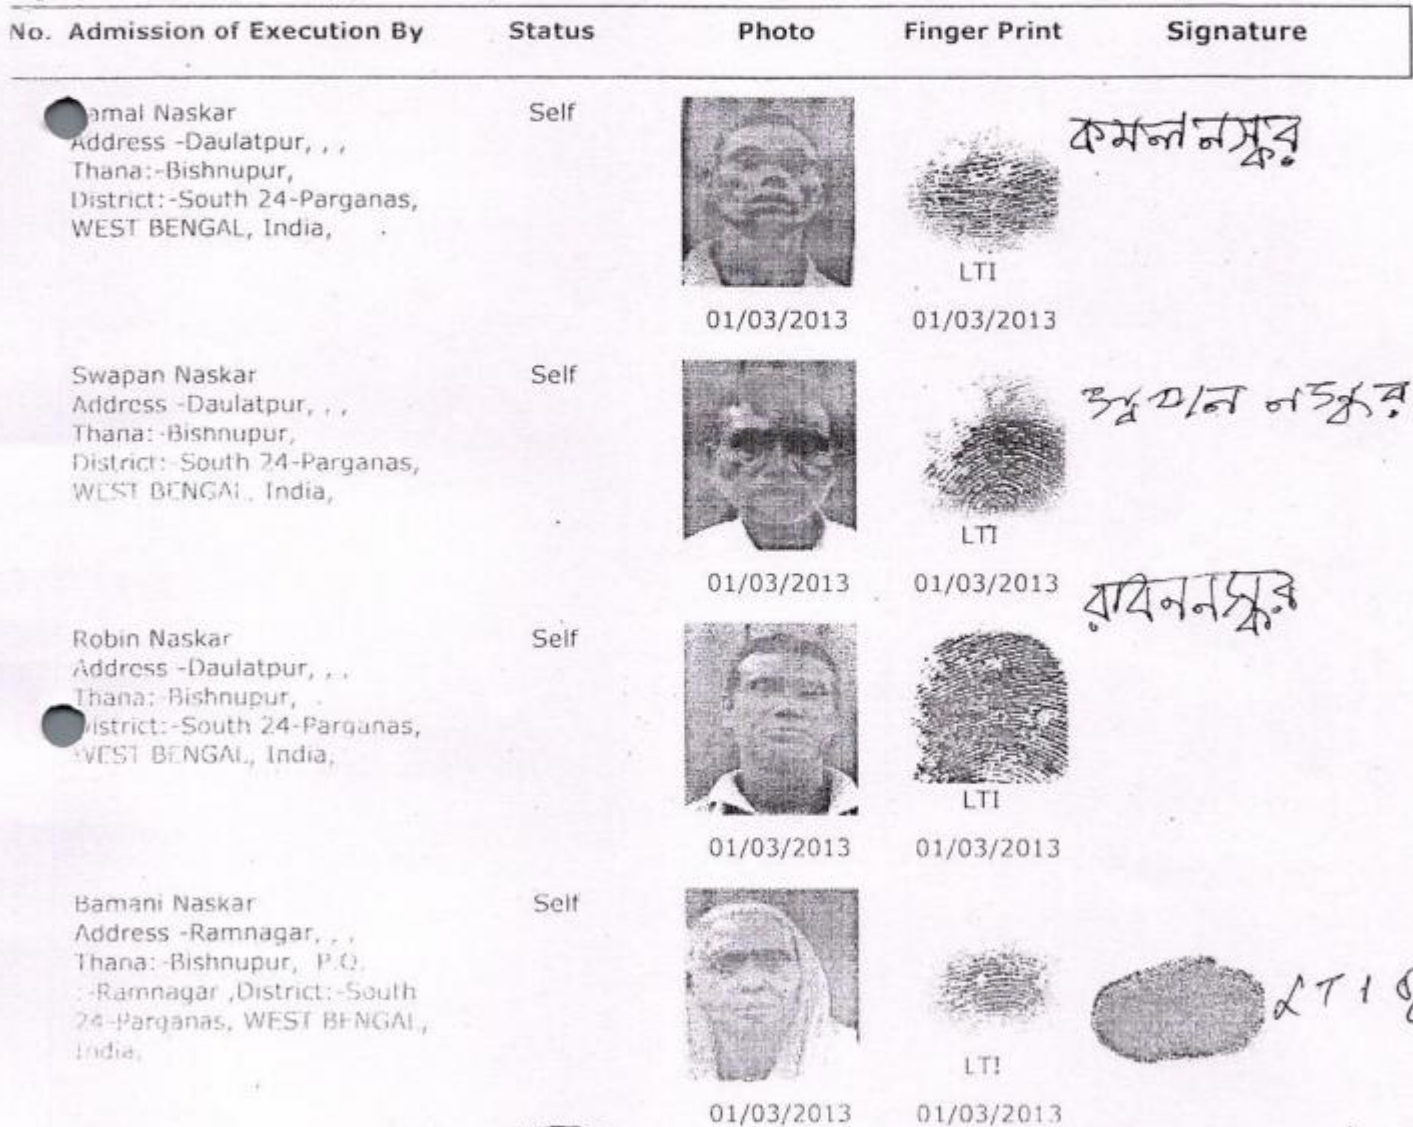 No. Admission of Execution By Status Photo Finger Print Signature
amal Naskar Self
Address -Daulatpur, , ,
Thana:-Bishnupur,
District:-South 24-Parganas,
WEST BENGAL, India,
কমল নস্কর
LTI
01/03/2013 01/03/2013
Swapan Naskar Self
Address -Daulatpur, , ,
Thana:-Bishnupur,
District:-South 24-Parganas,
WEST BENGAL, India,
স্বপন নস্কর
LTI
01/03/2013 01/03/2013
রবিন নস্কর
Robin Naskar Self
Address -Daulatpur, , ,
Thana:-Bishnupur,
istrict:-South 24-Parganas,
WEST BENGAL, India,
LTI
01/03/2013 01/03/2013
Bamani Naskar Self
Address -Ramnagar, , ,
Thana:-Bishnupur, P.O.
:-Ramnagar ,District:-South
24-Parganas, WEST BENGAL,
India,
LTI
LTI
01/03/2013 01/03/2013